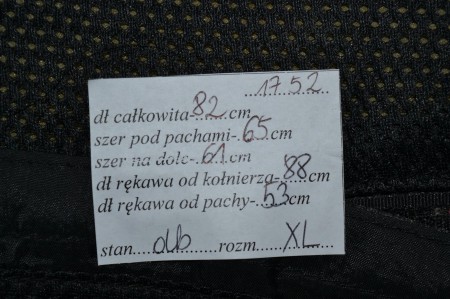 ....17.52....
dł całkowita-..82..cm
szer pod pachami-..65..cm
szer na dole-..61..cm
dł rękawa od kołnierza-..88..cm
dł rękawa od pachy-..53..cm
stan....db.......rozm......XL....